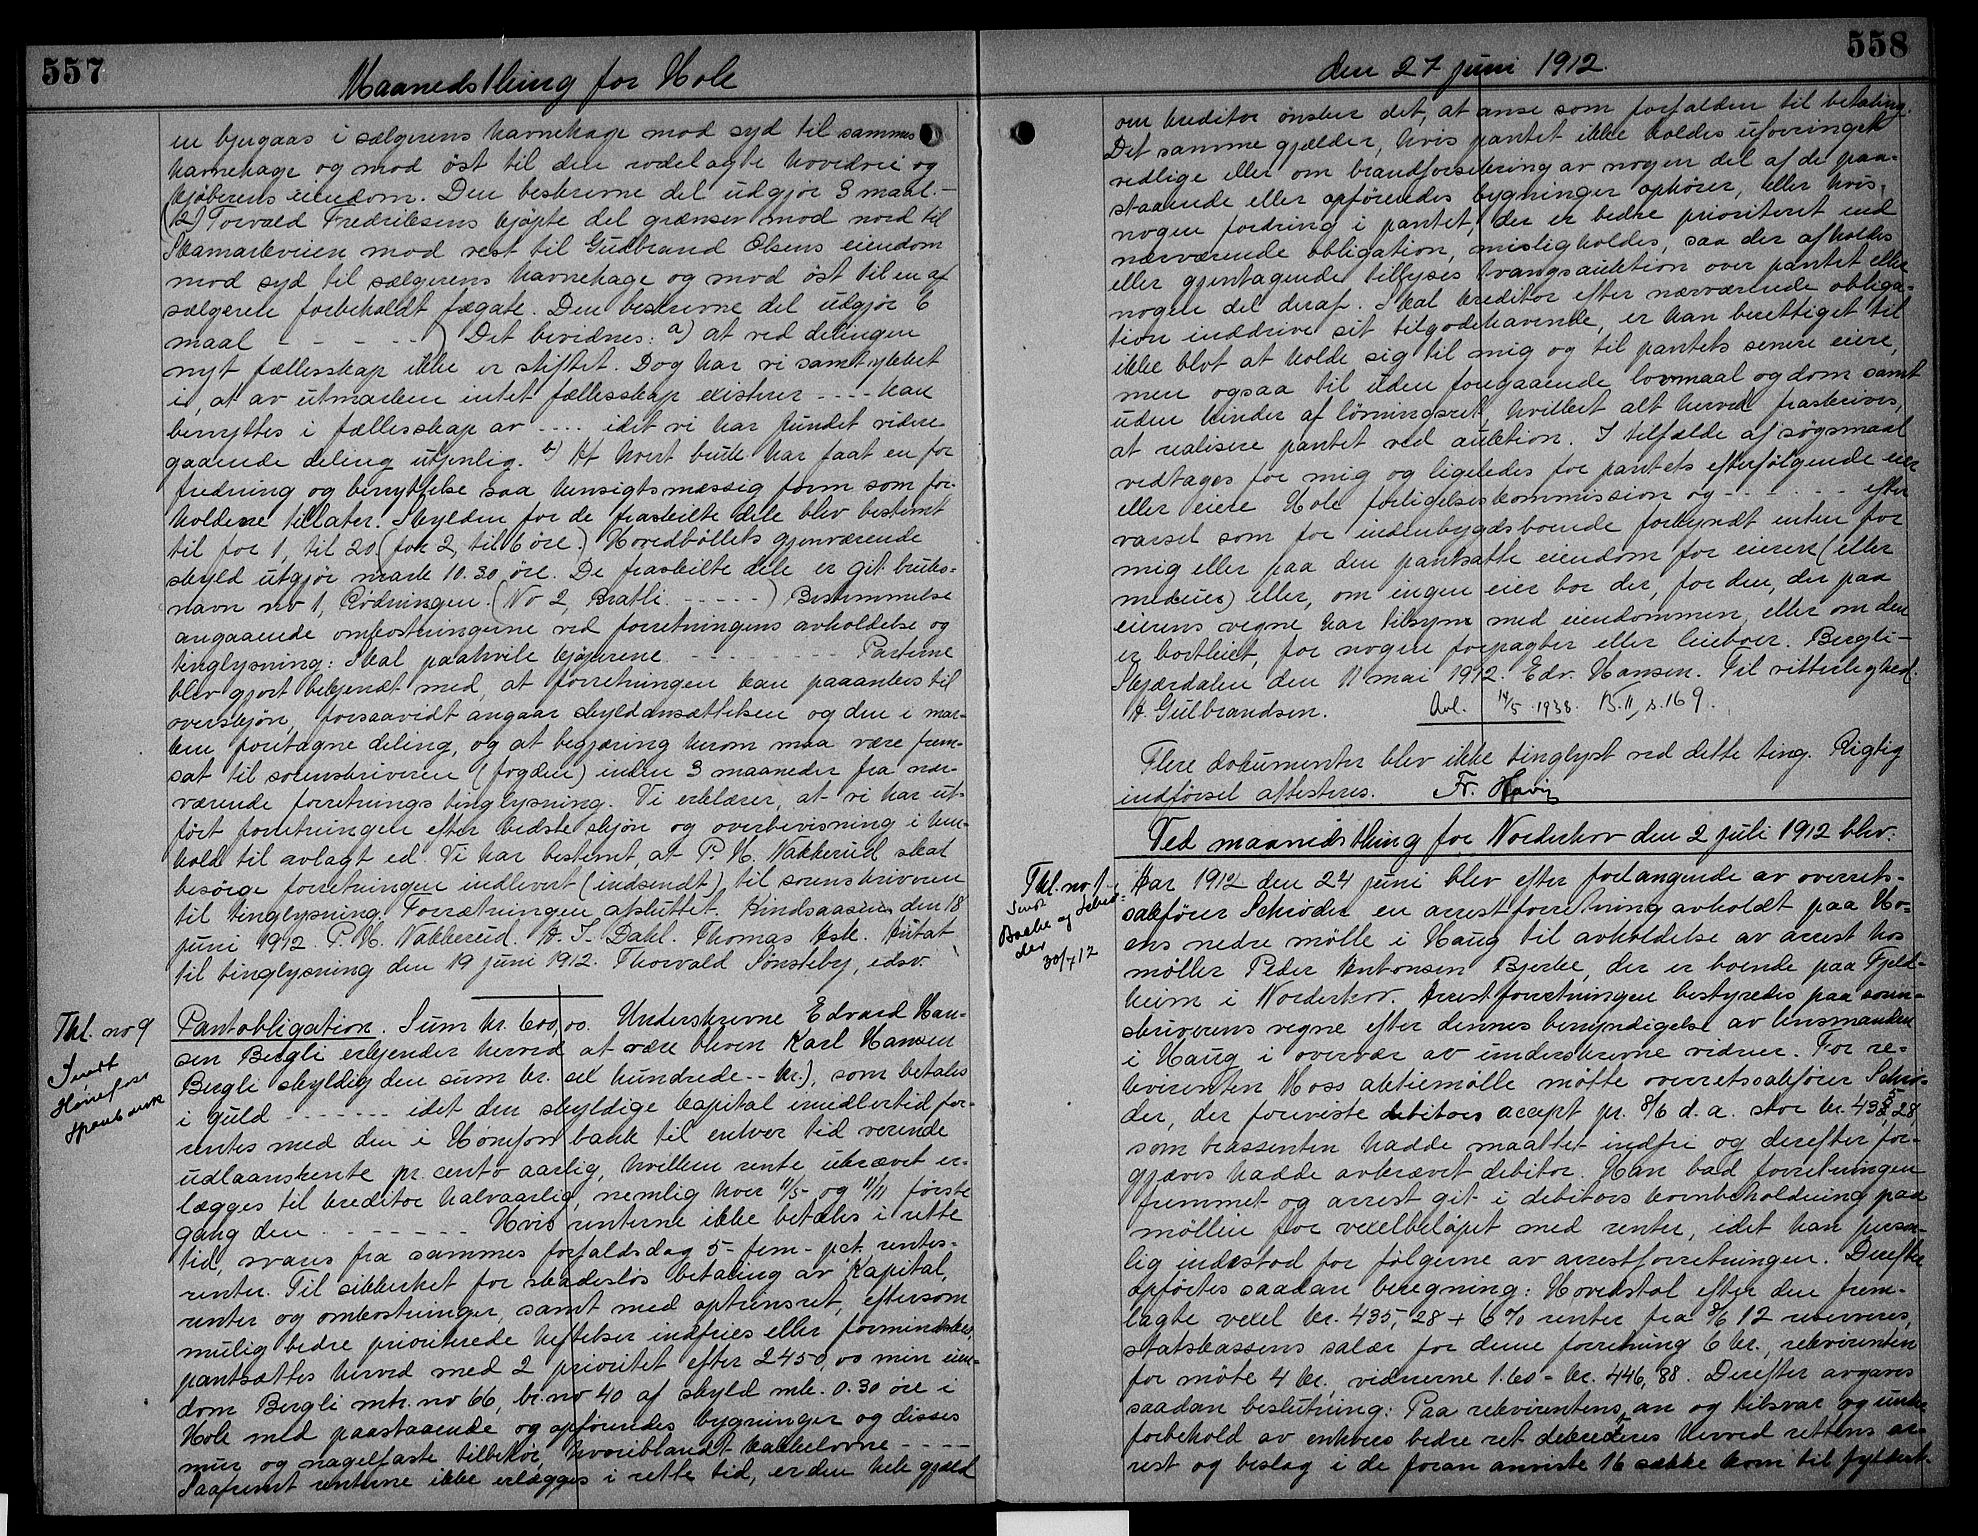 557
Maanedsthing for Hole
en bjergaas i sælgerens havnehage mod syd til sammes
havnehage og mod øst til den nedelagte hovedvei og
kjøberens eiendom. Den beskrevne del utgjør 3 maal. -
(2) Torvald Fredriksens kjøpte del grænser mod nord til
Stamarkveien mod vest til Gudbrand Olsens eiendom
mod syd til sælgerens havnehage og mod øst til en af
sælgeren forbeholdt fægate. Den beskrevne del utgjør 6
maal - - - - - ) Det bevidnes: a) at ved delingen
nyt fællesskap ikke er stiftet. Dog har vi samtykket
i, at av utmarken intet fællesskap existerer - - - - kan
benyttes i fællesskap av .... idet vi har fundet videre
gaaende deling utjenlig. b) At hvert bruk har faat en for
fredning og benyttelse saa hensigtsmæssig form som for-
holdene tillater. Skylden for de fraskilte dele blev bestemt
til for 1, til 20. (for 2, til 6 øre.) Hovedbøllets gjenværende
skyld utgjør mark 10.30 øre. De fraskilte dele er git bruks-
navn no 1, Rødningen. (No 2, Bratli. - - - - - ) Bestemmelse
angaaende omkostningerne ved forretningens avholdelse og
tinglysning: Skal paahvile kjøperne. - - - - - - - Parterne
blev gjort bekjendt med, at forretningen kan paaankes til
overskjøn, forsaavidt angaar skyldansættelsen og den i mar-
ken foretagne deling, og at begjæring herom maa være frem-
sat til sorenskriveren (fogden) inden 3 maaneder fra nær-
værende forretnings tinglysning. Vi erklærer, at vi har ut-
ført forretningen efter bedste skjøn og overbevisning i hen-
hold til avlagt ed. Vi har bestemt, at P. H. Nakkerud skal
besørge forretningen indlevert (indsendt) til sorenskriveren
til tinglysning. Forrætningen afsluttet. Rindsaasen den 18
juni 1912. P. H. Nakkerud. A. J. Dahl. Thomas Ask. Antat
til tinglysning den 19 juni 1912. Thorvald Sønsteby, edsv.
Thl. no 9
Sendt
Hønefoss
Sparebank
Pantobligation. Sum kr. 600,00. Underskrevne Edvard Han-
sen Bergli erkjender herved at være bleven Karl Hansen
Bergli skyldig den sum kr. sex hundrede - - kr.), som betales
i guld - - - - - - - idet den skyldige kapital imidlertid for-
rentes med den i Hønefos bank til enhver tid værende
udlaansrente pr. cento aarlig, hvilken rente ukrævet er-
lægges til kreditor halvaarlig, nemlig hver 11/5 og 11/11 første
gang den - - - - - - - Hvis renterne ikke betales i rette
tid, svares fra sammes forfaldsdag 5 - fem - pct. rentes-
renter. Til sikkerhet for skadesløs betaling av kapital,
renter og omkostninger, samt med optrinsret, eftersom
mulig bedre prioriterede heftelser indfries eller formindskes,
pantsættes herved med 2 prioritet efter 2450,00 min eien-
dom Bergli mtr. no 66, br. no 40 af skyld mk. 0.30 øre i
Hole med paastaaende og opførendes bygninger og disses
mur og nagelfaste tilbehør, hvoriblandt kakkelovne - - - -
Saafremt renterne ikke erlægges i rette tid, er den hele gjæld
558
den 27 juni 1912.
om kreditor ønsker det, at anse som forfalden til betaling.
Det samme gjælder, hvis pantet ikke holdes uforringet
vedlige eller om brandforsikring av nogen del af de paa-
staaende eller opførendes bygninger ophører, eller hvis
nogen fordring i pantet, der er bedre prioriteret end
nærværende obligation, misligholdes, saa der afholdes
eller gjentagende tillyses tvangsauktion over pantet eller
nogen del deraf. Skal kreditor efter nærværende obliga-
tion inddrive sit tilgodehavende, er han berettiget til
ikke blot at holde sig til mig og til pantets senere eiere,
men ogsaa til uden foregaaende lovmaal og dom samt
uden hinder af løsningsret, hvilket alt herved fraskrives,
at realisere pantet ved auktion. I tilfælde af søgsmaal
vedtages for mig og ligeledes for pantets efterfølgende eier
eller eiere Hole forligelseskommission og - - - - - - efter
varsel som for indenbygdsboende forkyndt enten for
mig eller paa den pantsatte eiendom for eieren (eller
medeier) eller, om ingen eier bor der, for den, der paa
eierens vegne har tilsyn med eiendommen, eller om den
er bortleiet, for nogen forpagter eller leieboer. Bergli -
Skjærdalen den 11 mai 1912. Edv. Hansen. Til vitterlighed:
A. Gulbrandsen. Avl. 14/5 1938. B. II, s. 169.
Flere dokumenter blev ikke tinglyst ved dette ting. Rigtig
indførsel attesteres. Fr.
Ved maanedsthing for Norderhov den 2 juli 1912 blev:
Thl. no 1
Sendt
Bache og Schrø-
der
30/7 12
Aar 1912 den 24 juni blev efter forlangende av overrets-
sakfører Schrøder en arrestforretning avholdt paa Ho-
ens nedre mølle i Haug til avholdelse av arrest hos
møller Peder Antonsen Bjerke, der er boende paa Fjeld-
heim i Norderhov. Arrestforretningen bestyredes paa soren-
skriverens vegne efter dennes bemyndigelse av lensmanden
i Haug i overvær av underskrevne vidner. For re-
kvirenten Moss aktiemølle møtte overretssakfører Schrø-
der, der foreviste debitors accept pr. 8/6 d. a. stor kr. 435,28,
som trassenten hadde maattet indfri og derefter for-
gjæves hadde avkrævet debitor. Han bad forretningen
fremmet og arrest git i debitors kornbeholdning paa
møllen for vexelbeløpet med renter, idet han person-
lig indestod for følgerne av arrestforretningen. Derefter
opførtes saadan beregning: Hovedstol efter den frem-
lagte vexel kr. 435,28 + 6 % renter fra 8/6 12 reserveres,
statskassens salær for denne forretning 6 kr., rekvirenten
for møte 4 kr., vidnerne 1.60 = kr. 446,88. Derefter avgaves
saadan beslutning: Paa rekvirentens an og tilsvar og under
forbehold av enhvers bedre ret dekreteres herved rettens ar-
rest og beslag i de foran anviste 16 sække korn til fyldest-